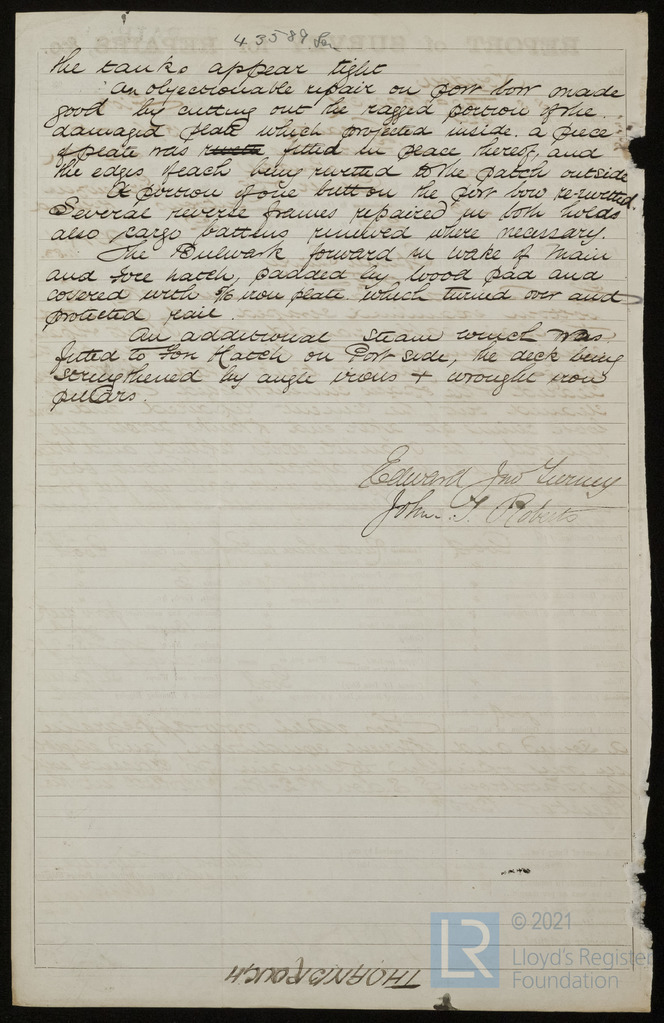 43589 Lon
the tanks appear tight
An objectionable repair on port bow made
good by cutting out the ragged portion of the
damaged plate which projected inside. a piece
of plate was fitted in place thereof, and
the edges of each being riveted to the patch outside
A portion of one butt on the port bow re-rivetted.
Several reverse frames repaired in both holds
also cargo battens renewed where necessary.
The Bulwark forward in wake of Main
and Fore hatch, padded by wood pad and
covered with iron plate which turned over and
protected rail.
An additional steam winch was
fitted to Fore Hatch on Port side, the deck being
strengthened by angle irons + wrought iron
pillars.
Edward Jno Tierney
John T. Roberts
THORNBROUGH
LR
© 2021
Lloyd's Register
Foundation